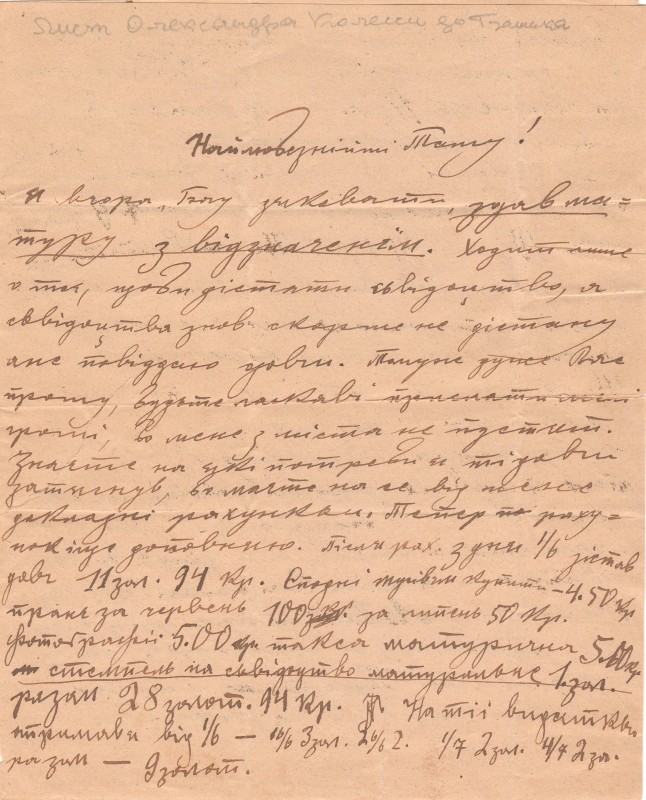 Лист Олександра Колесси до Батька
Наймовезнійші Тату!
Я вчора, Богу дяковати, здав ма=
туру з відзначенєм. Ходит лише
о те, щоби дістати сьвідоцтво, а
сьвідоцтва знов скорше не дістану
аже повіддаю довги. Тому дуже Вас
прошу, будьте ласкаві прислати мені
гроші, бо мене з міста не пустят.
Знаєте на які потреби я ті довги
затягнув, бо маєте на се від мене
докладні рахунки. Тепер раху=
нок іще доповню. Після рах. з дня 1/6 зістав
довг 11 зол. 94 кр. Сподні мусівєм купити – 4.50 кр
пранє за червень 100 за липень 50 кр.
фотографії 5.00 кр такса матурична 5.00 кр
стемпель на сьвідоцтво матуральне 1 зол.
разом 28 золот. 94 кр. На тії видатки
отримавєм від 1/6 – 16/6 3 зол. 26/6 2. 1/7 2 зол. 4/7 2 зол.
разом — 9 золот.